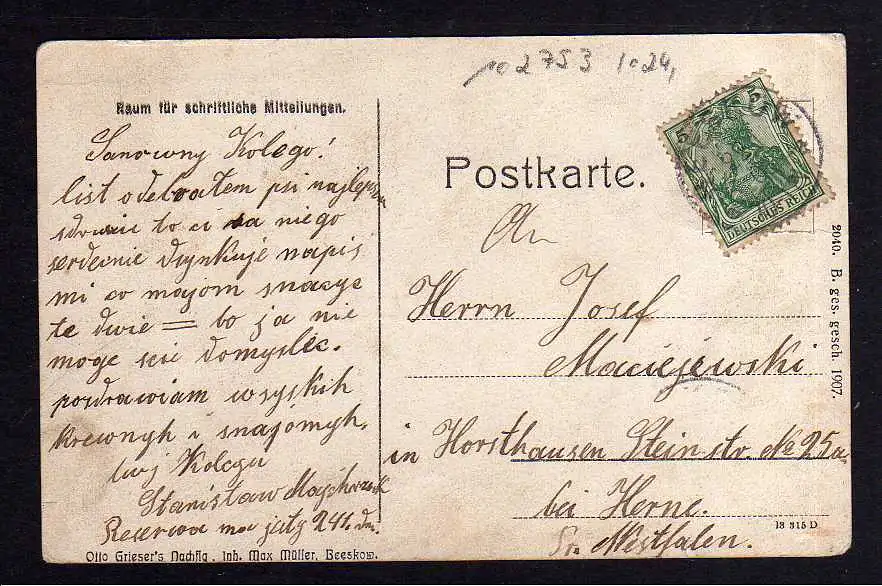 102753 1024,
Raum für schriftliche Mitteilungen.
Sanowny Kolego!
list odebratem psi najlepszem
sdrowie to ci sa niego
serdecnie dsynkuje napis
mi co majom snacyc
te dwie = bo ja nie
moge sie domyslec.
posdrawiam wsyskih
krewnyh i snajómyh,
twj Kolega
Stanisław
Reserwa ma jesty 241. dni
Otto Grieser's Nachflg., Inh. Max Müller, Beeskow.
Postkarte.
5 5
DEUTSCHES REICH
An
Herrn Josef
Maciejewski
in Horsthausen Steinstr. No 25a
bei Herne.
Pr. Westfalen.
2040. B. ges. gesch. 1907.
13 315 D